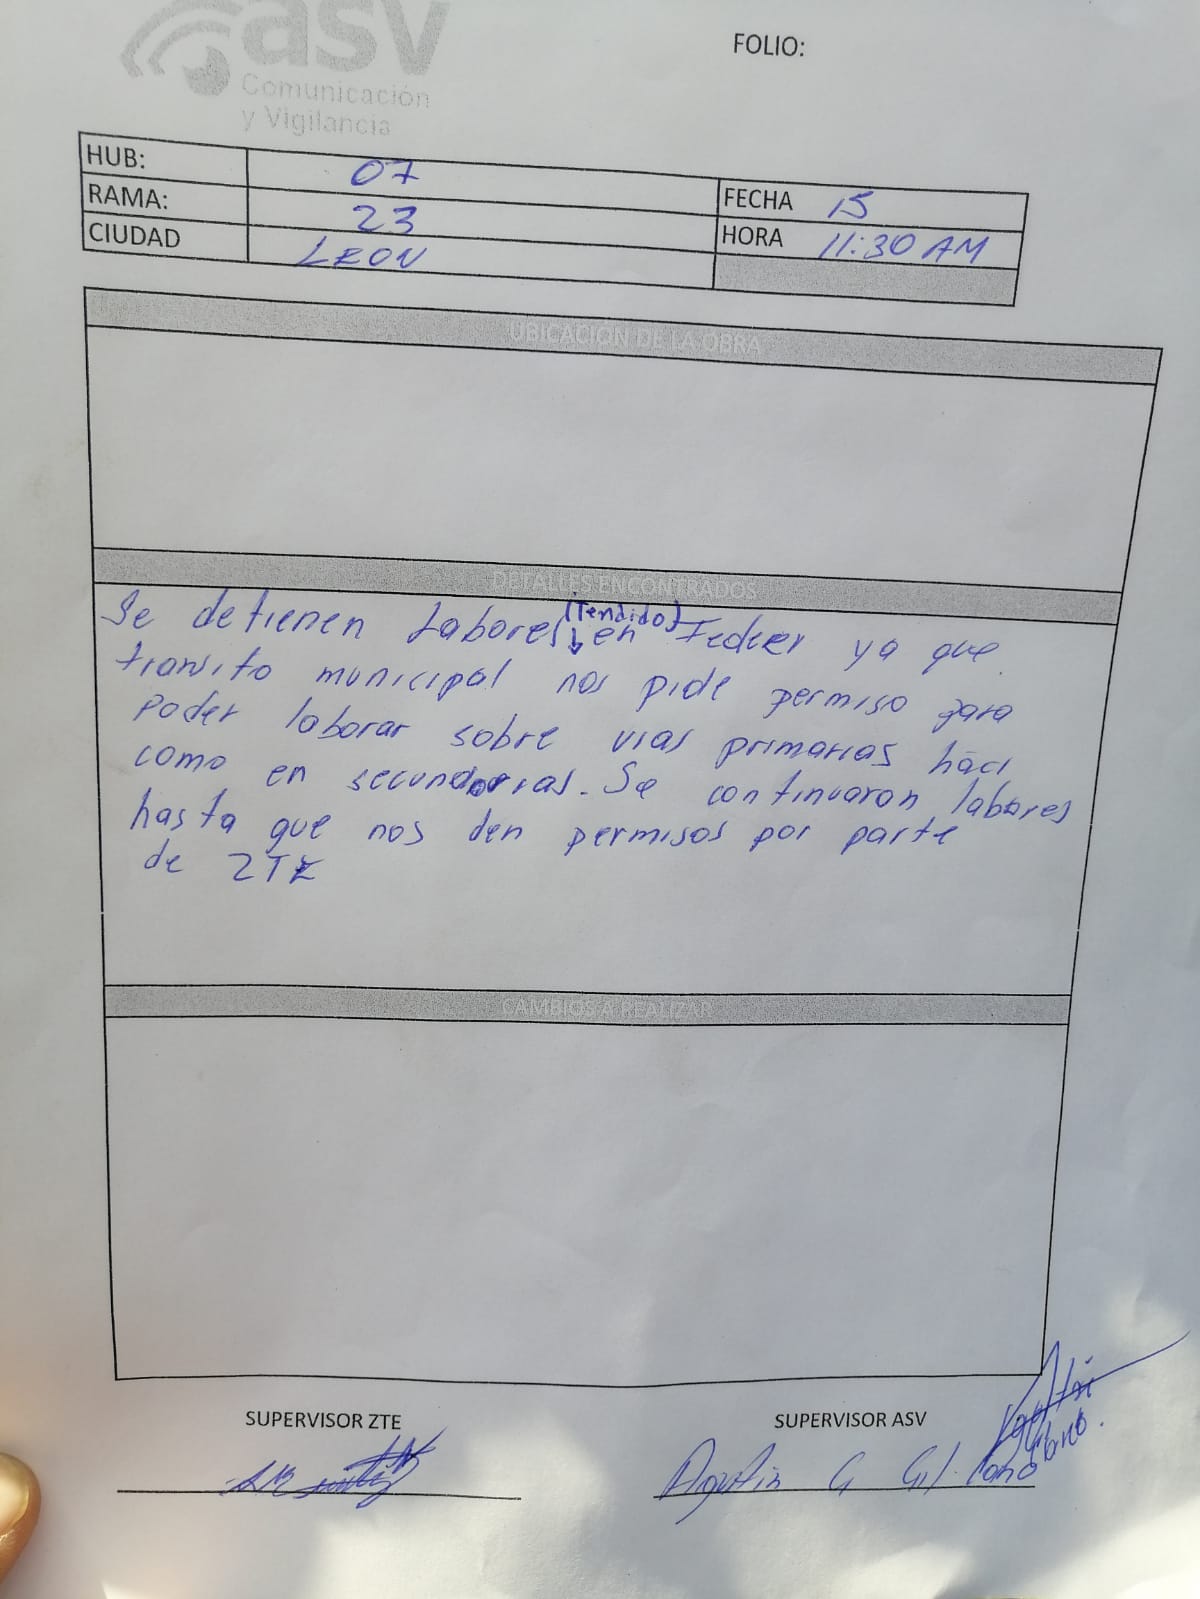 asv
Comunicación
y Vigilancia
FOLIO:
HUB: 07
RAMA: 23
CIUDAD LEON
FECHA 15
HORA 11:30 AM
UBICACION DE LA OBRA
DETALLES ENCONTRADOS
Se detienen Labores (Tendido) en Fedder ya que
transito municipal nos pide permiso para
Poder laborar sobre vias primarias haci
como en secundarias. Se continuaron labores
hasta que nos den permisos por parte
de ZTE
CAMBIOS A REALIZAR
SUPERVISOR ZTE
SUPERVISOR ASV
Agustin G Gil